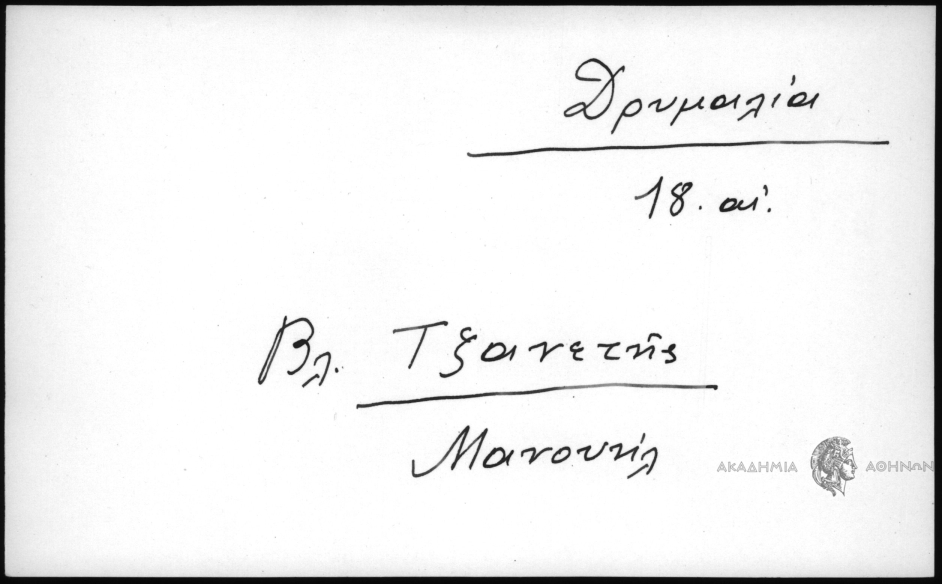 Δρυμαλία
18. αἰ.
Βλ. Τζανετῆς
Μανουήλ
ΑΚΑΔΗΜΙΑ ΑΘΗΝΩΝ